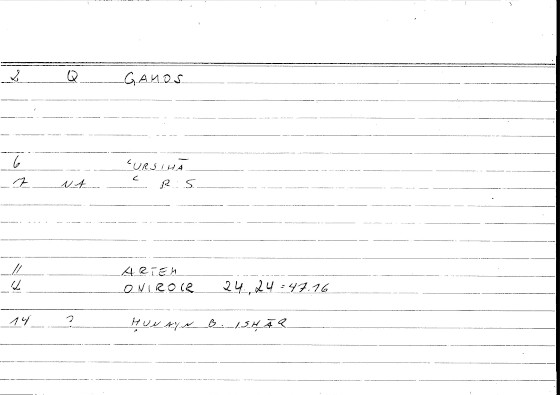 2 Q GAMOS
6 ʿURSIHĀ
7 NA ʿ R S
11 ARTEM
12 ONIROCR 24,24 = 47.16
14 ? ḤUNAYN B. ISḤĀQ